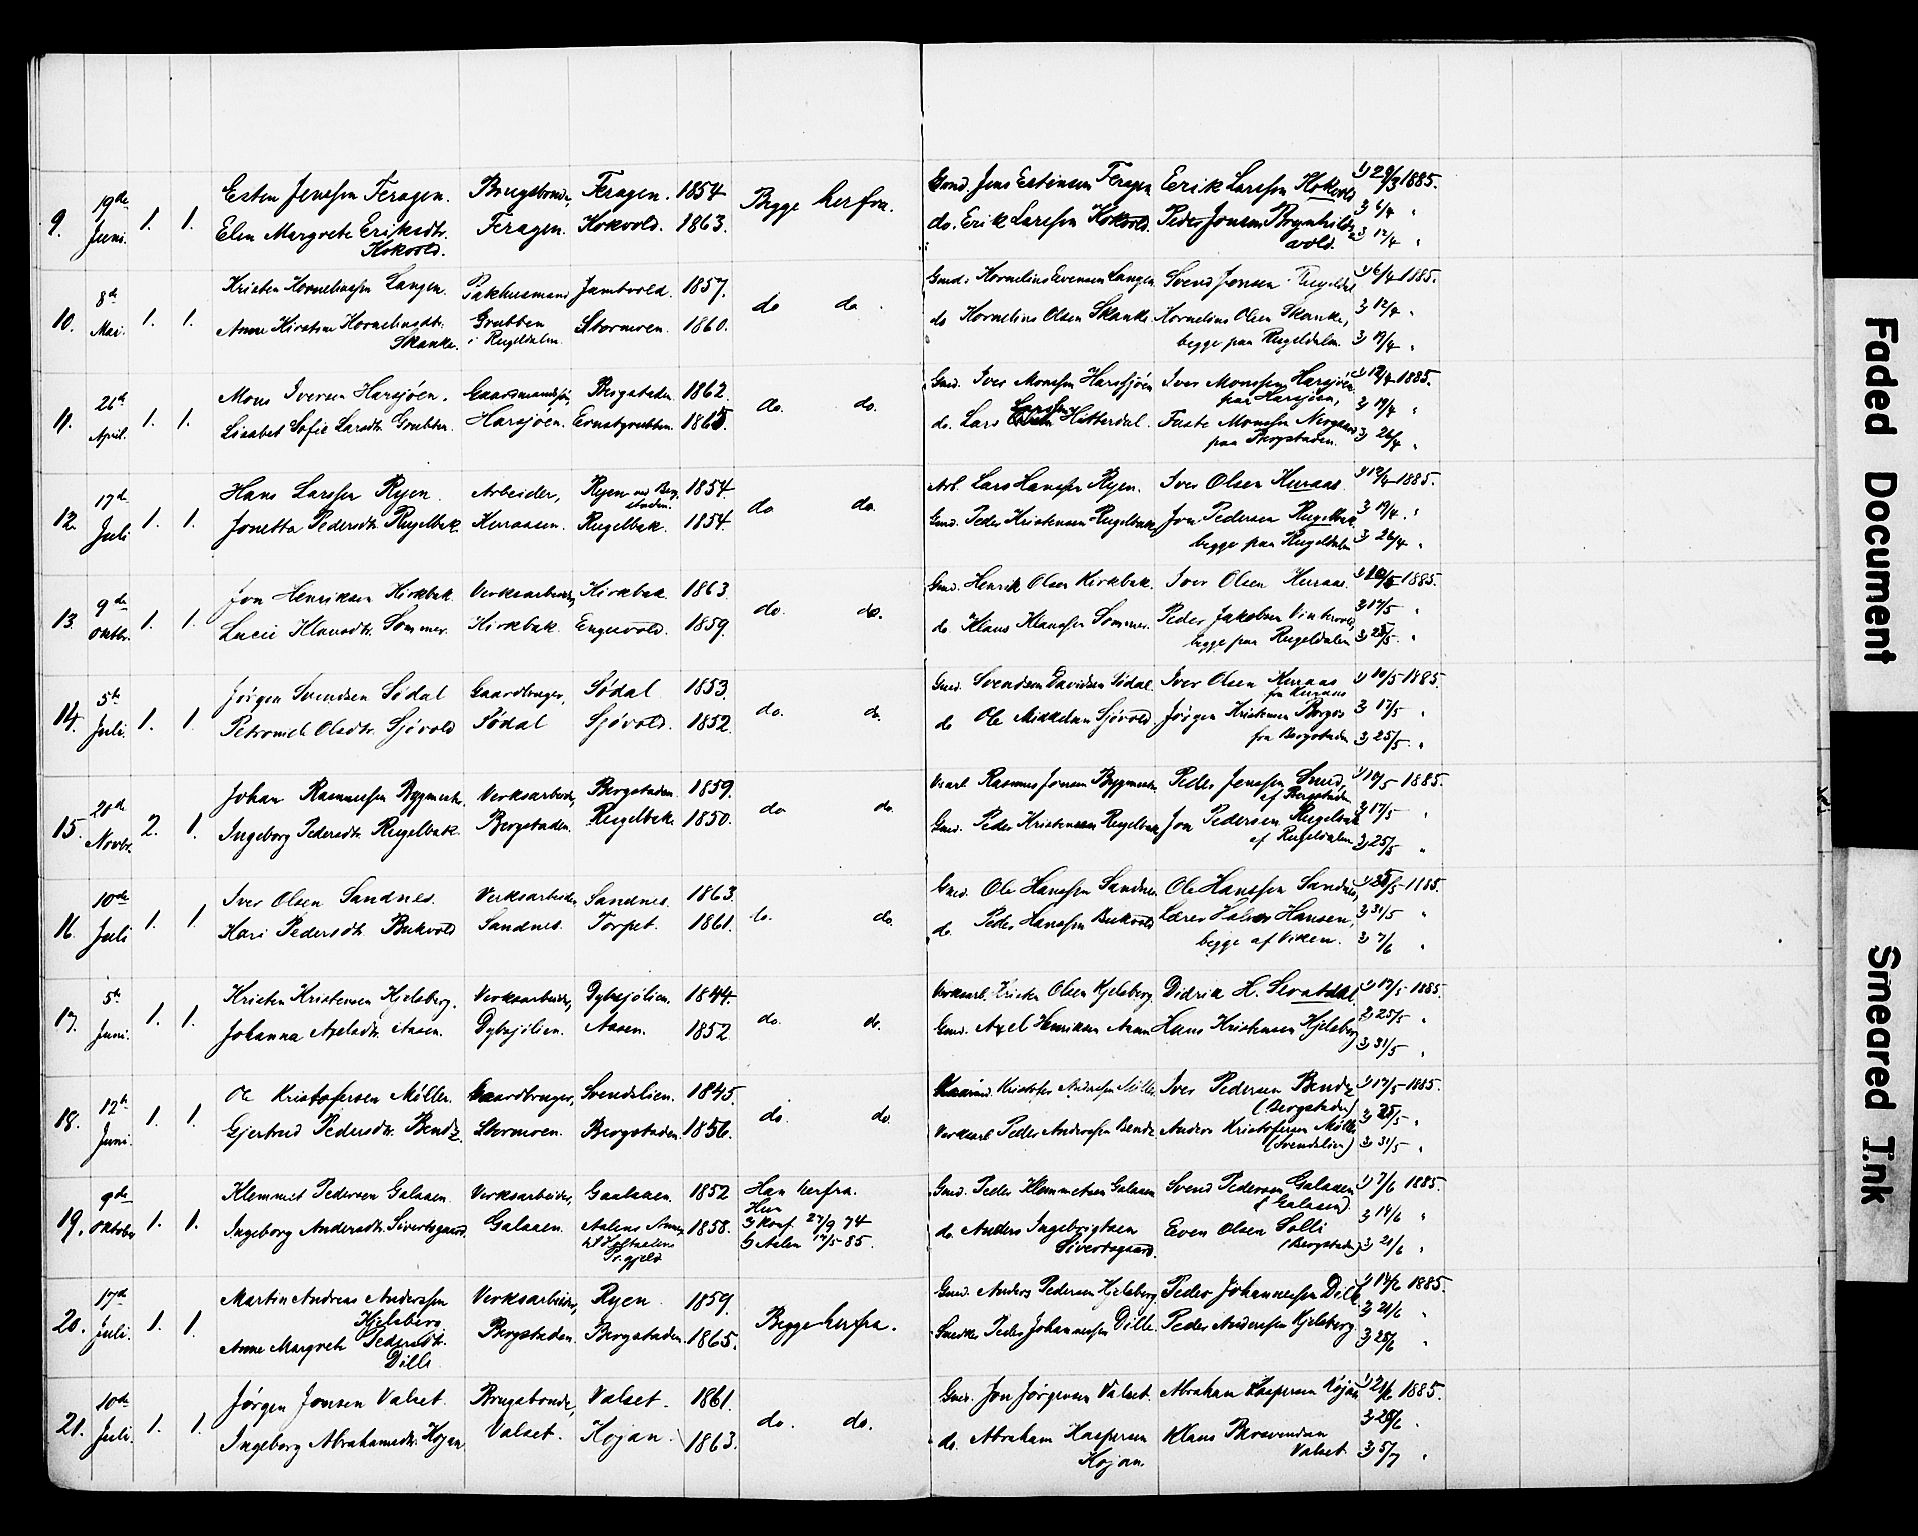 9. 19de Juni. 1. 1. Esten Jensen Feragen. Brugsbonde, Feragen. 1854 Begge herfra. Gmd. Jens Estensen Feragen Eerik Larssen Kokvold 1) 29/3 1885.
Elen Margrete Eriksdtr. Kokvold. Feragen. Kokvold. 1863. do. Erik Larssen Kokvold. Peder Jonsen Brynhildsvold. 2) 6/4 " 3) 12/4 "
10. 8de Mai. 1. 1. Kristen Korneliussen Langen. Pakhusmand Jamtvold. 1857. do do. Gmd. Kornelius Evensen Langen. Svend Jonsen Rugeldal 1) 6/4 1885.
Anne Kirstine Korneliusdtr. Skanke. Grubben i Rugeldalen. Stormoen. 1860. do Kornelius Olsen Skanke. Kornelius Olsen Skanke, begge paa Rugeldalen. 2) 12/4 " 3) 19/4 "
11. 26de April. 1. 1. Mons Iversen Harsjöen. Gaardmandssön, Bergstaden. 1862. do. do. Gmd. Iver Monssen Harsjöen Iver Monssen Harsjöen paa Harsjöen, 1) 12/4 1885.
Lisabet Sofie Larsdtr. Grubben. Harsjöen. Ernstgrubben. 1865. do. Lars Larssen Hitterdal. Faste Monssen Nergaard paa Bergstaden. 2) 19/4 " 3) 26/4 "
12. 17de Juli 1. 1. Hans Larssen Ryen. Arbeider, Ryen ved Bergstaden. 1854. do do. Arb. Lars Hanssen Ryen. Iver Olsen Kuraas. 1) 12/4 1885.
Jonetta Pedersdtr. Rugelbak. Kuraasen. Rugelbak. 1854. Gmd. Peder Kristensen Rugelbak, Jon Pedersen Rugelbak begge paa Rugeldalen 2) 19/4 " 3) 26/4 "
13. 9de Oktbr. 1. 1. Jon Henriksen Kirkbak. Verksarbeider, Kirkbak. 1863. do. do. Gmd. Henrik Olsen Kirkbak. Iver Olsen Kuraas. 1) 10/5 1885.
Lucie Klausdtr. Sommer. Kirkbak. Engesvold. 1859. do. Klaus Klaussen Sommer. Peder Jakobsen Vintervold, begge paa Rugeldalen 2) 17/5 " 3) 25/5 "
14. 5te Juli. 1. 1. Jörgen Svendsen Södal Gaardbruger, Södal 1853. do. do. Gmd. Svendsen Davidsen Södal. Iver Olsen Kuraas fra Kuraas 1) 10/5 1885.
Petronel Olsdtr. Sjövold Södal Sjövold. 1852. do Ole Mikkelsen Sjövold. Jörgen Kristensen Borgos fra Bergstaden 2) 17/5 " 3) 25/5 "
15. 20de Novbr. 2. 1. Johan Rasmussen Bygmester, Verksarbeider, Bergstaden. 1859. do do. V.arb. Rasmus Jonsen Bygmester Peder Jenssen Smed, af Bergstaden 1) 10/5 1885.
Ingeborg Pedersdtr. Rugelbak. Bergstaden. Rugelbak. 1850. Gmd. Peder Kristensen Rugelbak Jon Pedersen Rugelbak af Rugeldalen. 2) 17/5 " 3) 25/5 "
16. 10de Juli 1. 1. Iver Olsen Sandnes. Verksarbeider, Sandnes. 1863. do. do. Gmd. Ole Hanssen Sandnes Ole Hanssen Sandnes, 1) 25/5 1885.
Kari Pedersdtr. Bukvold Sandnes. Torpet. 1861. do. Peder Hanssen Bukvold. Lærer Halvor Hansen, begge af Viken. 2) 31/5 " 3) 7/6 "
17. 5te Juni. 1. 1. Kristen Kristensen Kjelsberg. Verksarbeider, Dybsjölien. 1844. do. do. Verksarb. Kristen Olsen Kjelsberg. Didrik H. Slvatdal 1) 17/5 1885.
Johanna Axelsdtr. Aasen. Dybsjölien. Aasen. 1852. Gmd. Axel Henriksen Aasen Hans Kristensen Kjelsberg 2) 25/5 " 3) 31/5 "
18. 12te Juni. 1. 1. Ole Kristofersen Möller. Gaardbruger, Svendslien. 1845. do. do. Gaardmd. Kristofer Andersen Möller. Iver Pedersen Bendz (Bergstaden) 1) 17/5 1885.
Gjertrud Pedersdtr. Bendz. Stormoen. Bergstaden. 1856. Verksarb. Peder Anderssen Bendz Anders Kristofersen Möller (Svendslien) 2) 25/5 " 3) 31/5 "
19. 9de Oktober 1. 1. Klemmet Pedersen Galaaen. Verksarbeider, Gaalaaen. 1852 Han herfra. Gmd. Peder Klemmetsen Galaaen. Svend Pedersen Galaaen (Galaaen). 1) 7/6 1885.
Ingeborg Andersdtr. Sivertsgaard. Galaaen. Aalens Annex til Holtaalens Pr.gjeld 1858. Hun 3) konf. 27/9 74 6) Aalen 14/5 85. do. Anders Ingebrigtsen Sivertsgaard. Even Olsen Solli (Bergstaden) 2) 14/6 " 3) 21/6 "
20. 17de Juli. 1. 1. Martin Andreas Anderssen Kjelsberg Verksarbeider, Ryen. 1859. Begge herfra. Gmd. Anders Pedersen Kjelsberg. Peder Johannessen Dille 1) 14/6 1885.
Anne Margrete Pedersdtr. Dille Bergstaden. Bergstaden. 1865. Snedker Peder Johannessen Dille. Peder Anderssen Kjelsberg. 2) 21/6 " 3) 28/6 "
21. 10de Juli. 1. 1. Jørgen Jonsen Valset. Brugsbonde, Valset. 1861. do. do. Gmd. Jon Jørgensen Valset. Abraham Kaspersen Kojan 1) 21/6 1885.
Ingeborg Abrahamsdtr. Kojan. Valset. Kojan. 1863. do. Abraham Kaspersen Kojan. Klaus Thorvendsen Valset 2) 28/6 " 3) 5/7 "
Faded Document
Smeared Ink